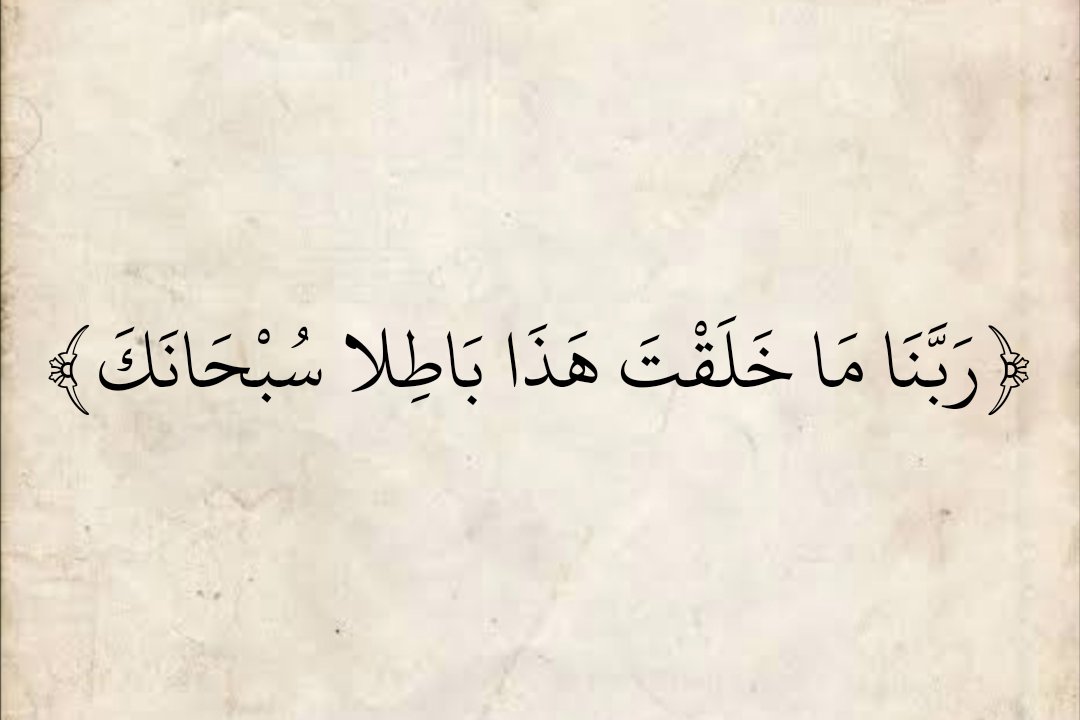 ﴿رَبَّنَا مَا خَلَقْتَ هَذَا بَاطِلا سُبْحَانَكَ ﴾